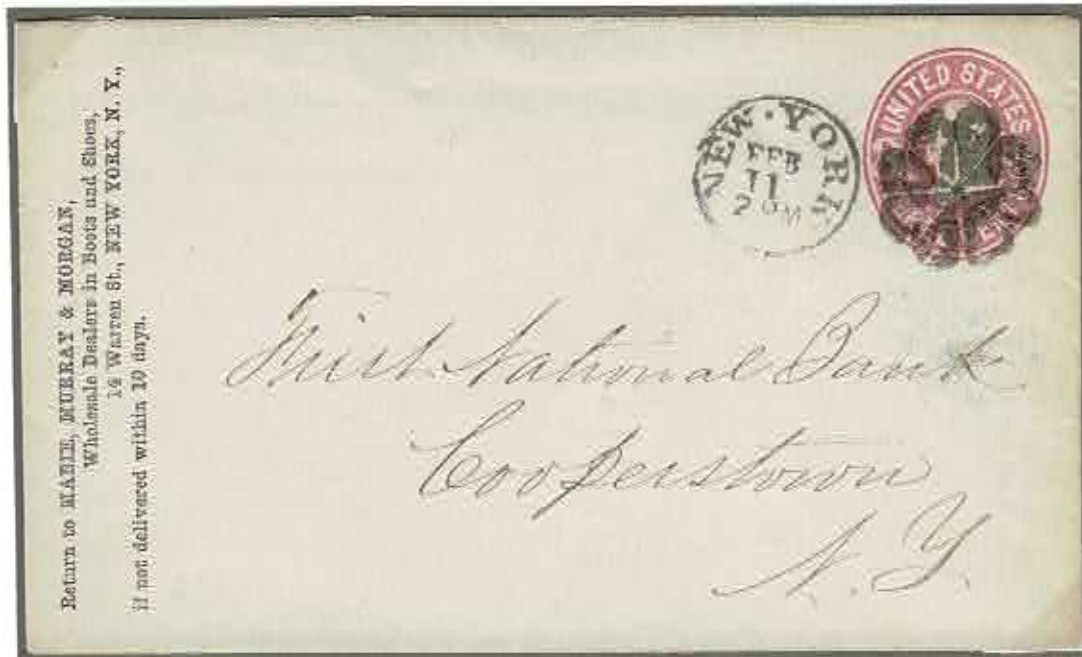 Return to MABIE, MURRAY & MORGAN,
Wholesale Dealers in Boots and Shoes,
14 Warren St., NEW YORK, N. Y.,
If not delivered within 10 days.
NEW·YORK
FEB
11
2 PM
UNITED STATES
First National Bank
Cooperstown
N. Y.